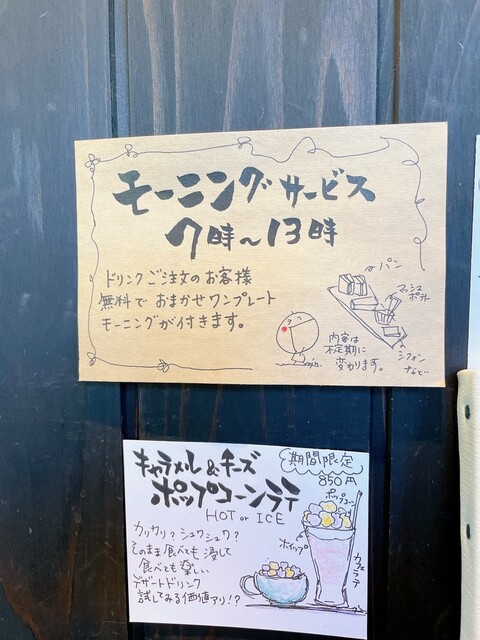 モーニングサービス
7時〜13時
ドリンクご注文のお客様
無料でおまかせワンプレート
モーニングが付きます。
パン
マッシュ
ポテト
シフォン
など…
内容は
不定期に
変わります。
キャラメル&チーズ
ポップコーンラテ
HOT or ICE
期間限定
850円
カリカリ?シュワシュワ?
そのまま食べても浸して
食べても楽しい
デザートドリンク
試してみる価値アリ!?
ポップコーン
ホイップ
カフェラテ